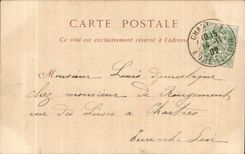 CARTE POSTALE
Ce côté est exclusivement réservé à l'adresse
CHARTRES
Monsieur Louis
chez monsieur de Rougemont
rue des Lisses à Chartres
Eure-et-Loir